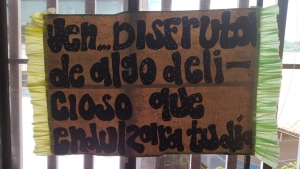 Ven... DISFRUTA
de algo deli-
cioso que
endulzara tu día